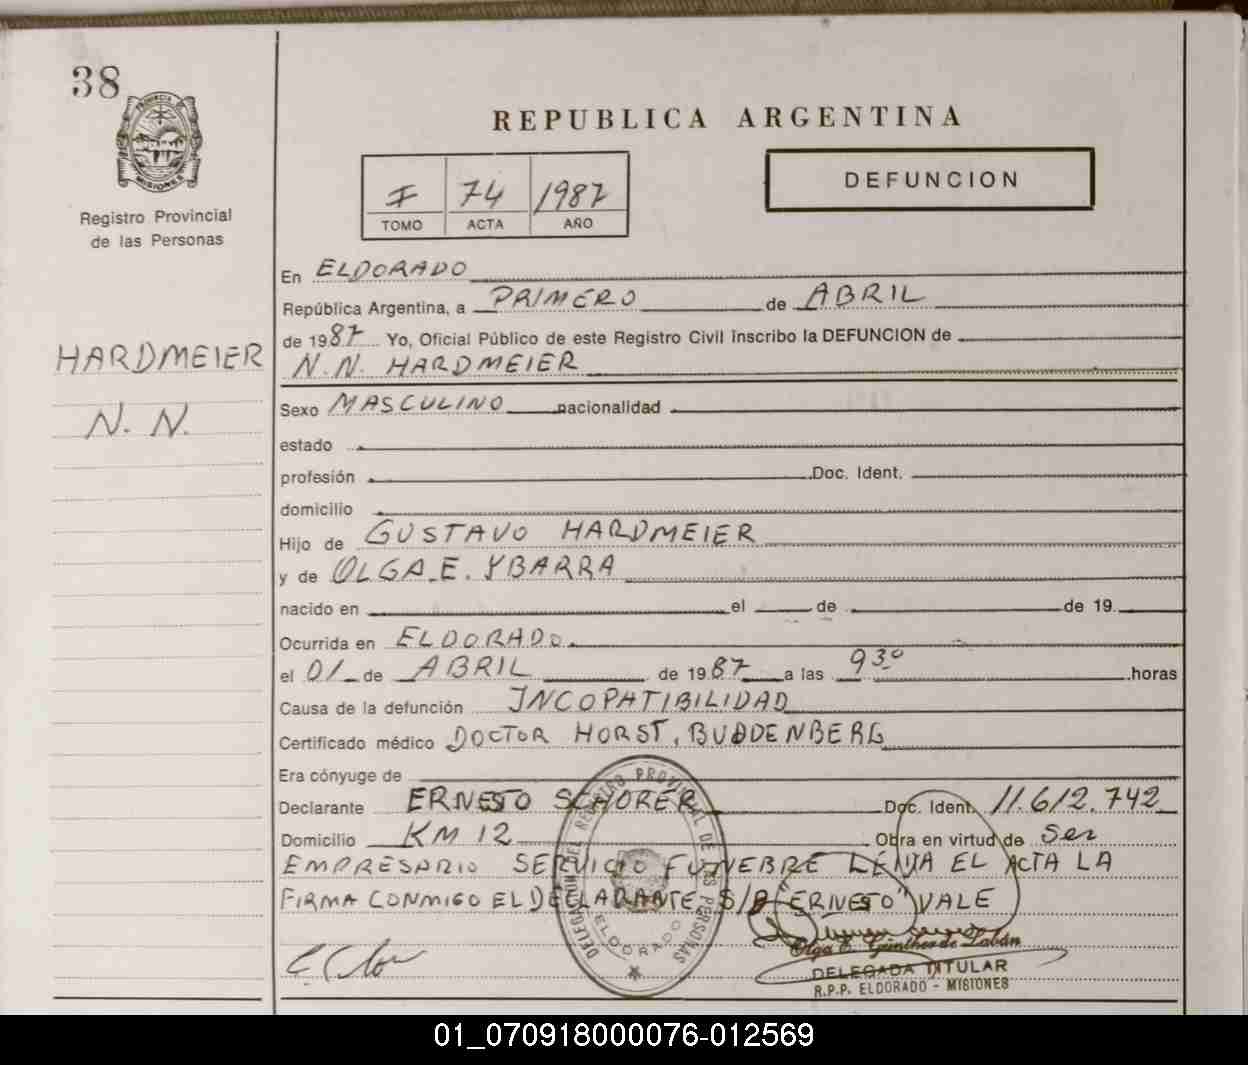 38
PROVINCIA DE MISIONES
Registro Provincial
de las Personas
HARDMEIER
N. N.
REPUBLICA ARGENTINA
I 74 1987
TOMO ACTA AÑO
DEFUNCION
En ELDORADO
República Argentina, a PRIMERO de ABRIL
de 1987 Yo, Oficial Público de este Registro Civil inscribo la DEFUNCION de
N.N. HARDMEIER
Sexo MASCULINO nacionalidad
estado
profesión Doc. Ident.
domicilio
Hijo de GUSTAVO HARDMEIER
y de OLGA E. YBARRA
nacido en el de de 19
Ocurrida en ELDORADO
el 01 de ABRIL de 1987 a las 9 30 horas
Causa de la defunción INCOPATIBILIDAD
Certificado médico DOCTOR HORST, BUDDENBERG
Era cónyuge de
Declarante ERNESTO SCHORER Doc. Ident. 11.612.742
Domicilio KM 12 Obra en virtud de ser
EMPRESARIO SERVICIO FUNEBRE LEIDA EL ACTA LA
FIRMA CONMIGO EL DECLARANTE S/B "ERNESTO" VALE
DELEGACION DEL REGISTRO PROVINCIAL DE LAS PERSONAS
ELDORADO
Olga E. Günther de Labán
DELEGADA TITULAR
R.P.P. ELDORADO - MISIONES
01_070918000076-012569